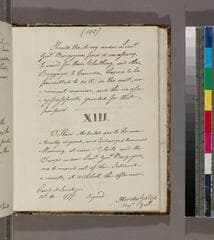 (105)
Should the Army under Lieut
Genl Burgoyne find it necessary
to send for their Cloathing, and other
Baggage to Canada, they are to be
permitted to do it, in the most
convenient manner, and the necessary
passports granted for that
purpose.
XIII.
These Articles are to be
mutually signed, and exchanged tomorrow
Morning, at nine o'Clock and the
Troops under Lieut Genl Burgoyne,
are to march out of their Intrench-
ments, at 3 o'Clock the afternoon.
Camp at Saratoga
1777
Signed
Horatio Gates
Genl